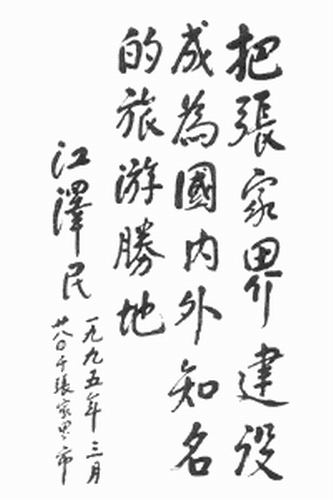 把張家界建设
成為國内外知名
的旅游勝地
江澤民
一九九五年三月
廿八日于張家界市